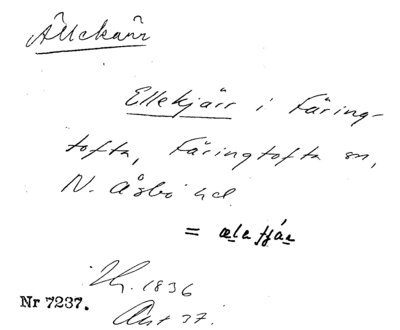 Ällekärr
Ellekjärr i Färing-
tofta, Färingtofta sn,
N. Åsbo hd.
= 
Th. 1836
Nr 7237.
Ant 37.